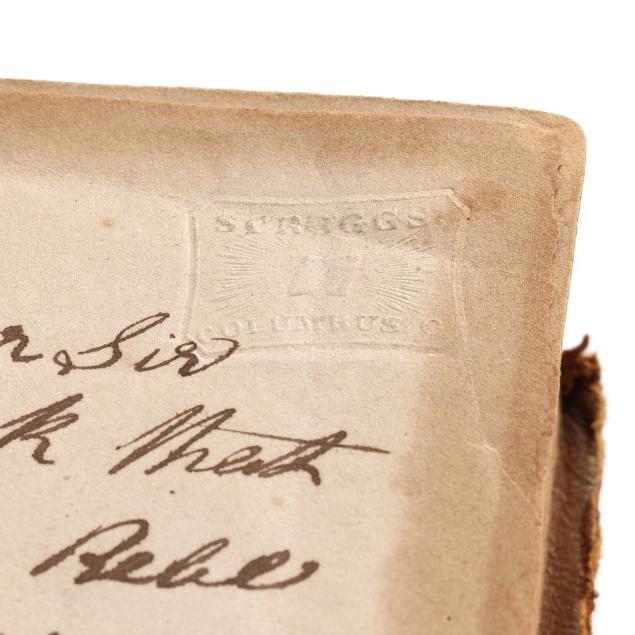 SCRIGGS
COLUMBUS O
r Sir
k that
Rebel